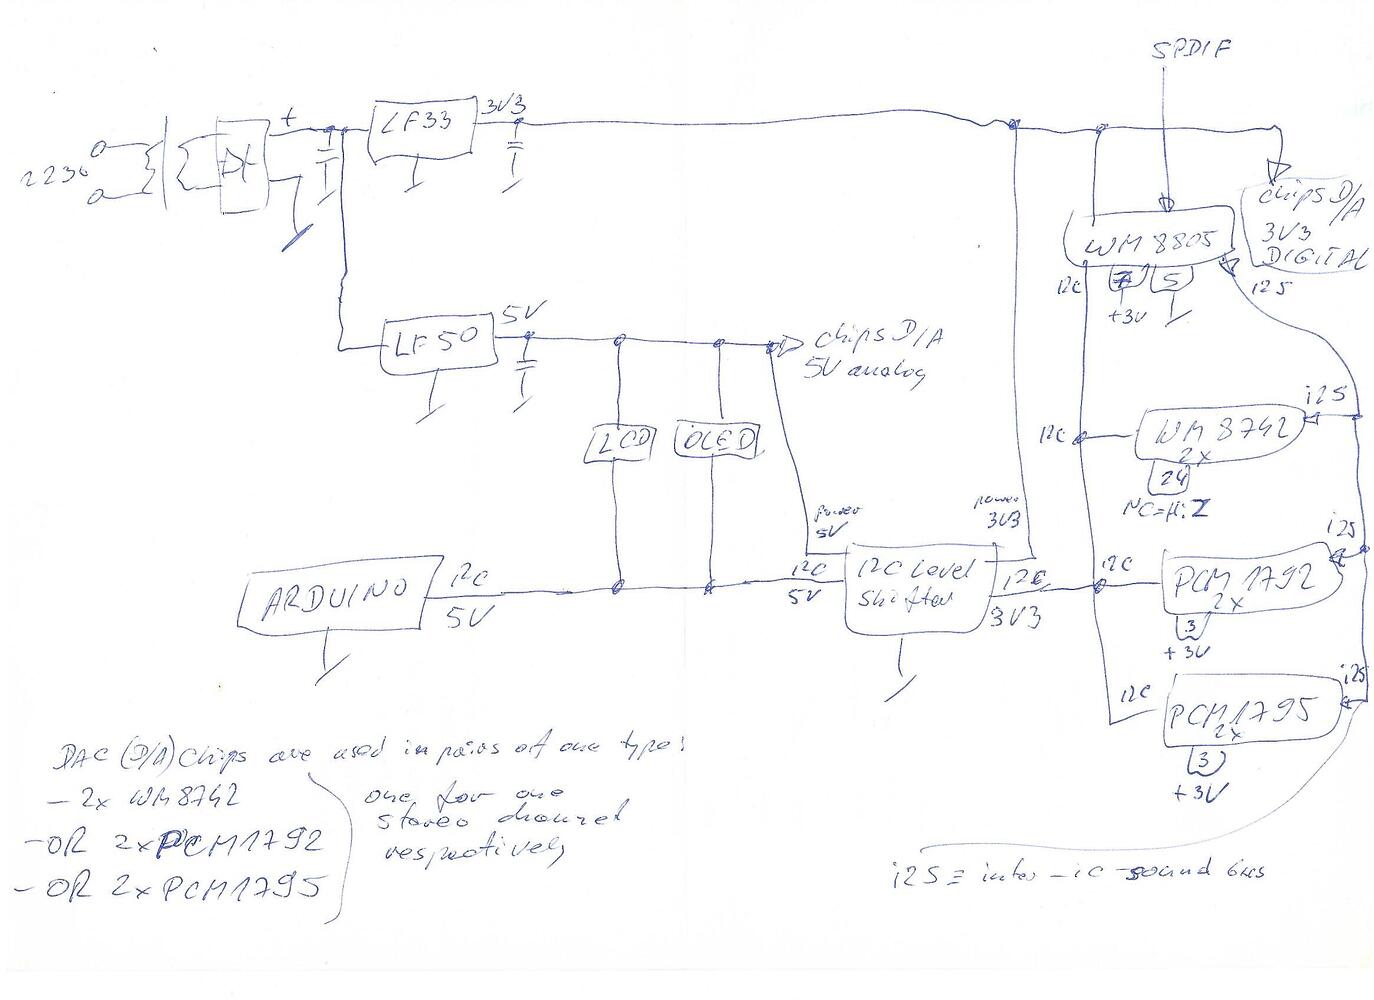 SPDIF
+
LF33
3V3
chips D/A
3V3
DIGITAL
WM 8805
I2C
7
5
+3V
I2S
LF50
5V
chips D/A
5V analog
LCD
OLED
i2S
I2C
WM 8742
2x
24
NC=Hi Z
power
5V
power
3V3
i2S
ARDUINO
I2C
5V
I2C
5V
I2C Level
Shifter
I2C
3V3
I2C
PCM 1792
2x
3
+3V
i2S
I2C
PCM1795
2x
3
+3V
DAC (D/A) Chips are used in pairs of one type:
- 2x WM8742
- OR 2xPCM1792
- OR 2xPCM1795
one for one
stereo channel
respectively
i2S = inter-ic-sound bus